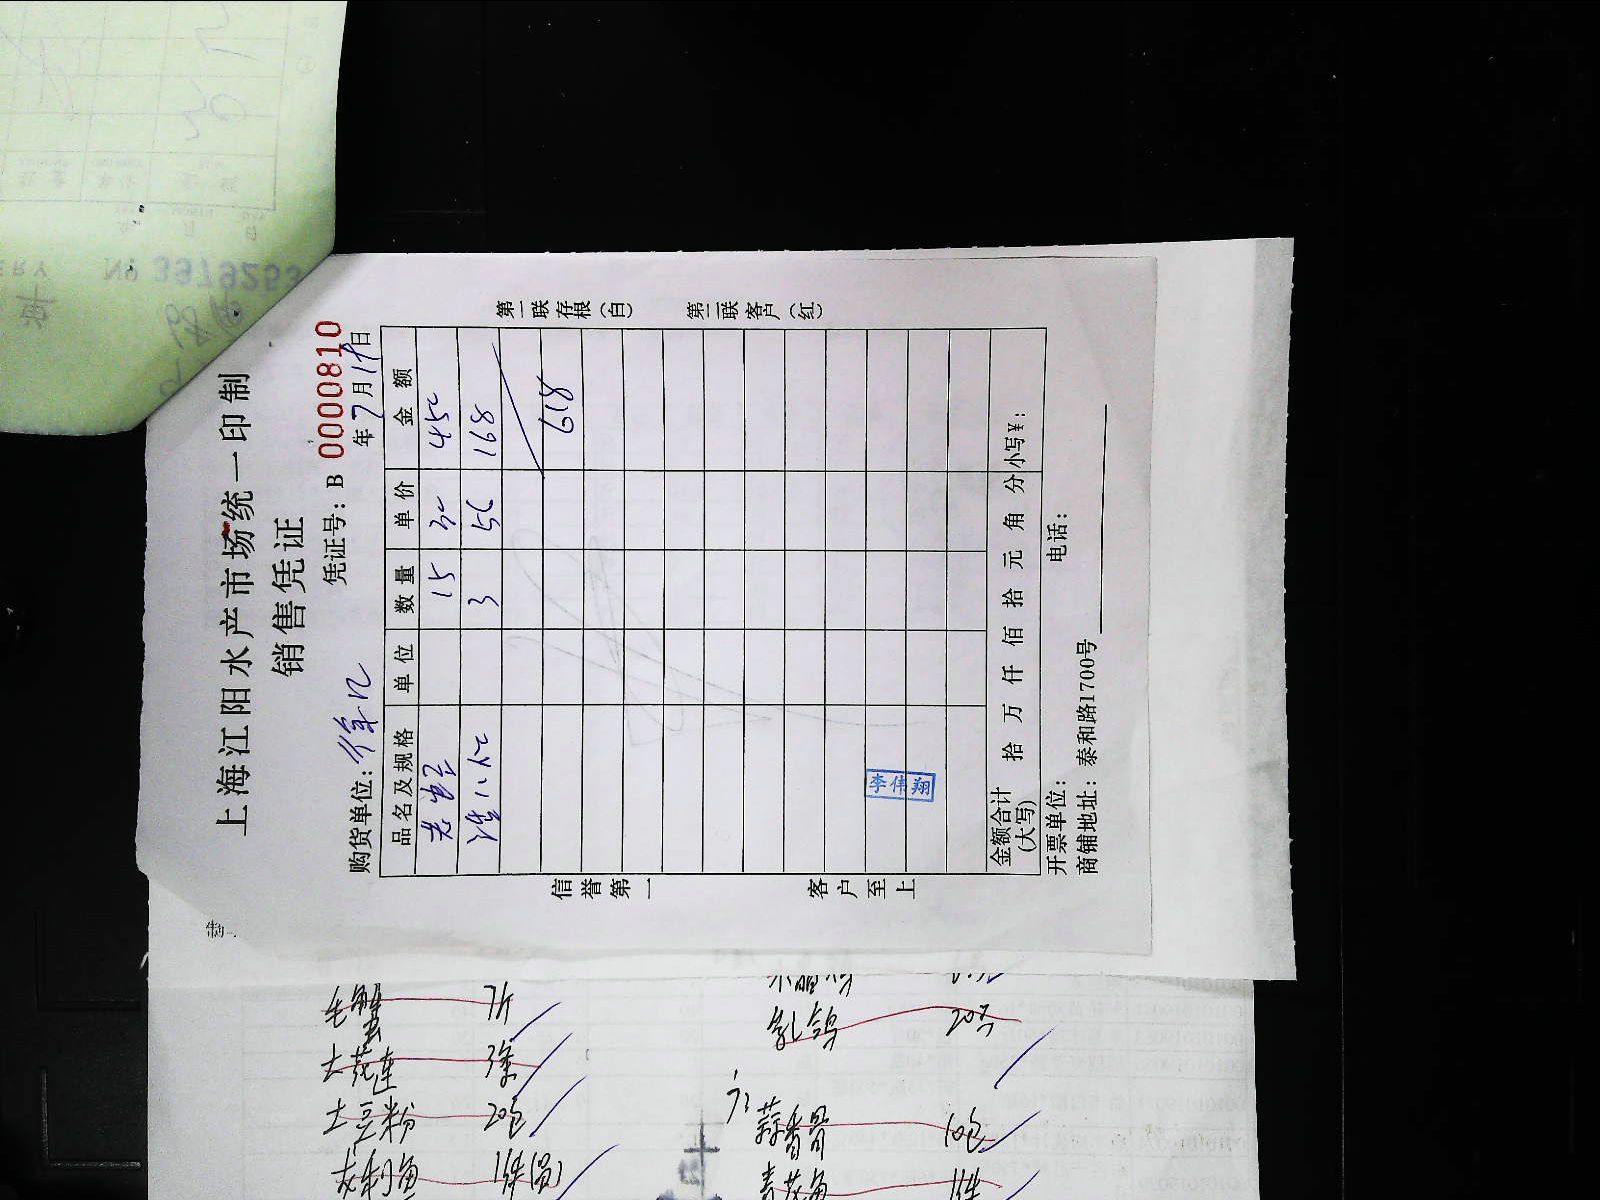 上海江阳水产市场统一印制
销售凭证
凭证号：B 0000810
购货单位：徐记
年7月19日
品名及规格 单位 数量 单价 金额
15 30 450
3 56 168
618
第一联存根（白）
第二联客户（红）
信誉第一
客户至上
李伟翔
金额合计（大写） 拾 万 仟 佰 拾 元 角 分 小写￥：
开票单位：
电话：
商铺地址：泰和路1700号
№ 3979253
毛蟹 7斤
大花连 3条
土豆粉 20包
乳鸽 20只
蒜香骨 10包
青花鱼 1件